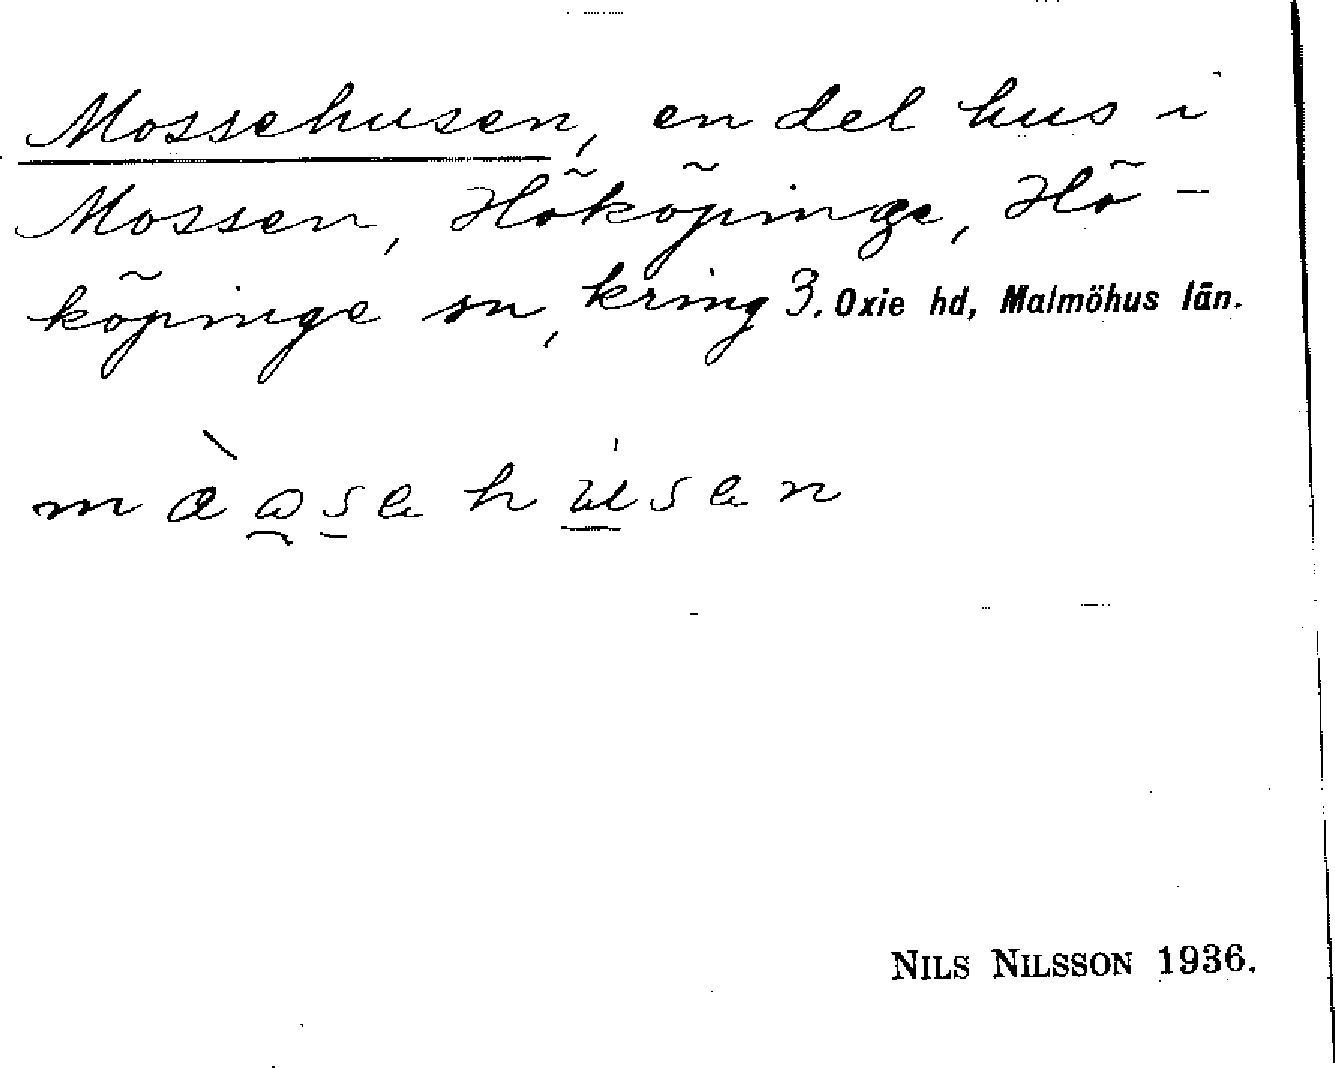 Mossehusen, en del hus i
Mossen, Hököpinge, Hö-
köpinge sn, kring 3. Oxie hd, Malmöhus län.
NILS NILSSON 1936.